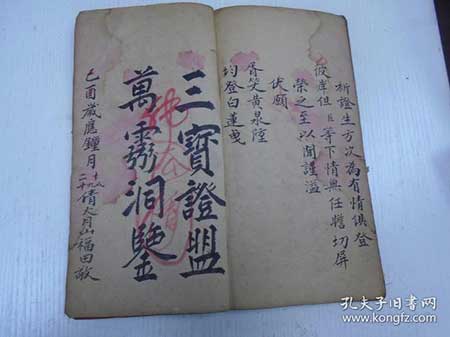 祈證生方次為有情俱登
彼岸但 等下情無任 切屏
榮之至以聞謹溢
伏願
胥笑黃泉陸
均登白蓮曳
三寶證盟
萬靈洞鑒
己酉歲應鐘月 倩 月山福田敬
孔夫子旧书网
www.kongfz.com